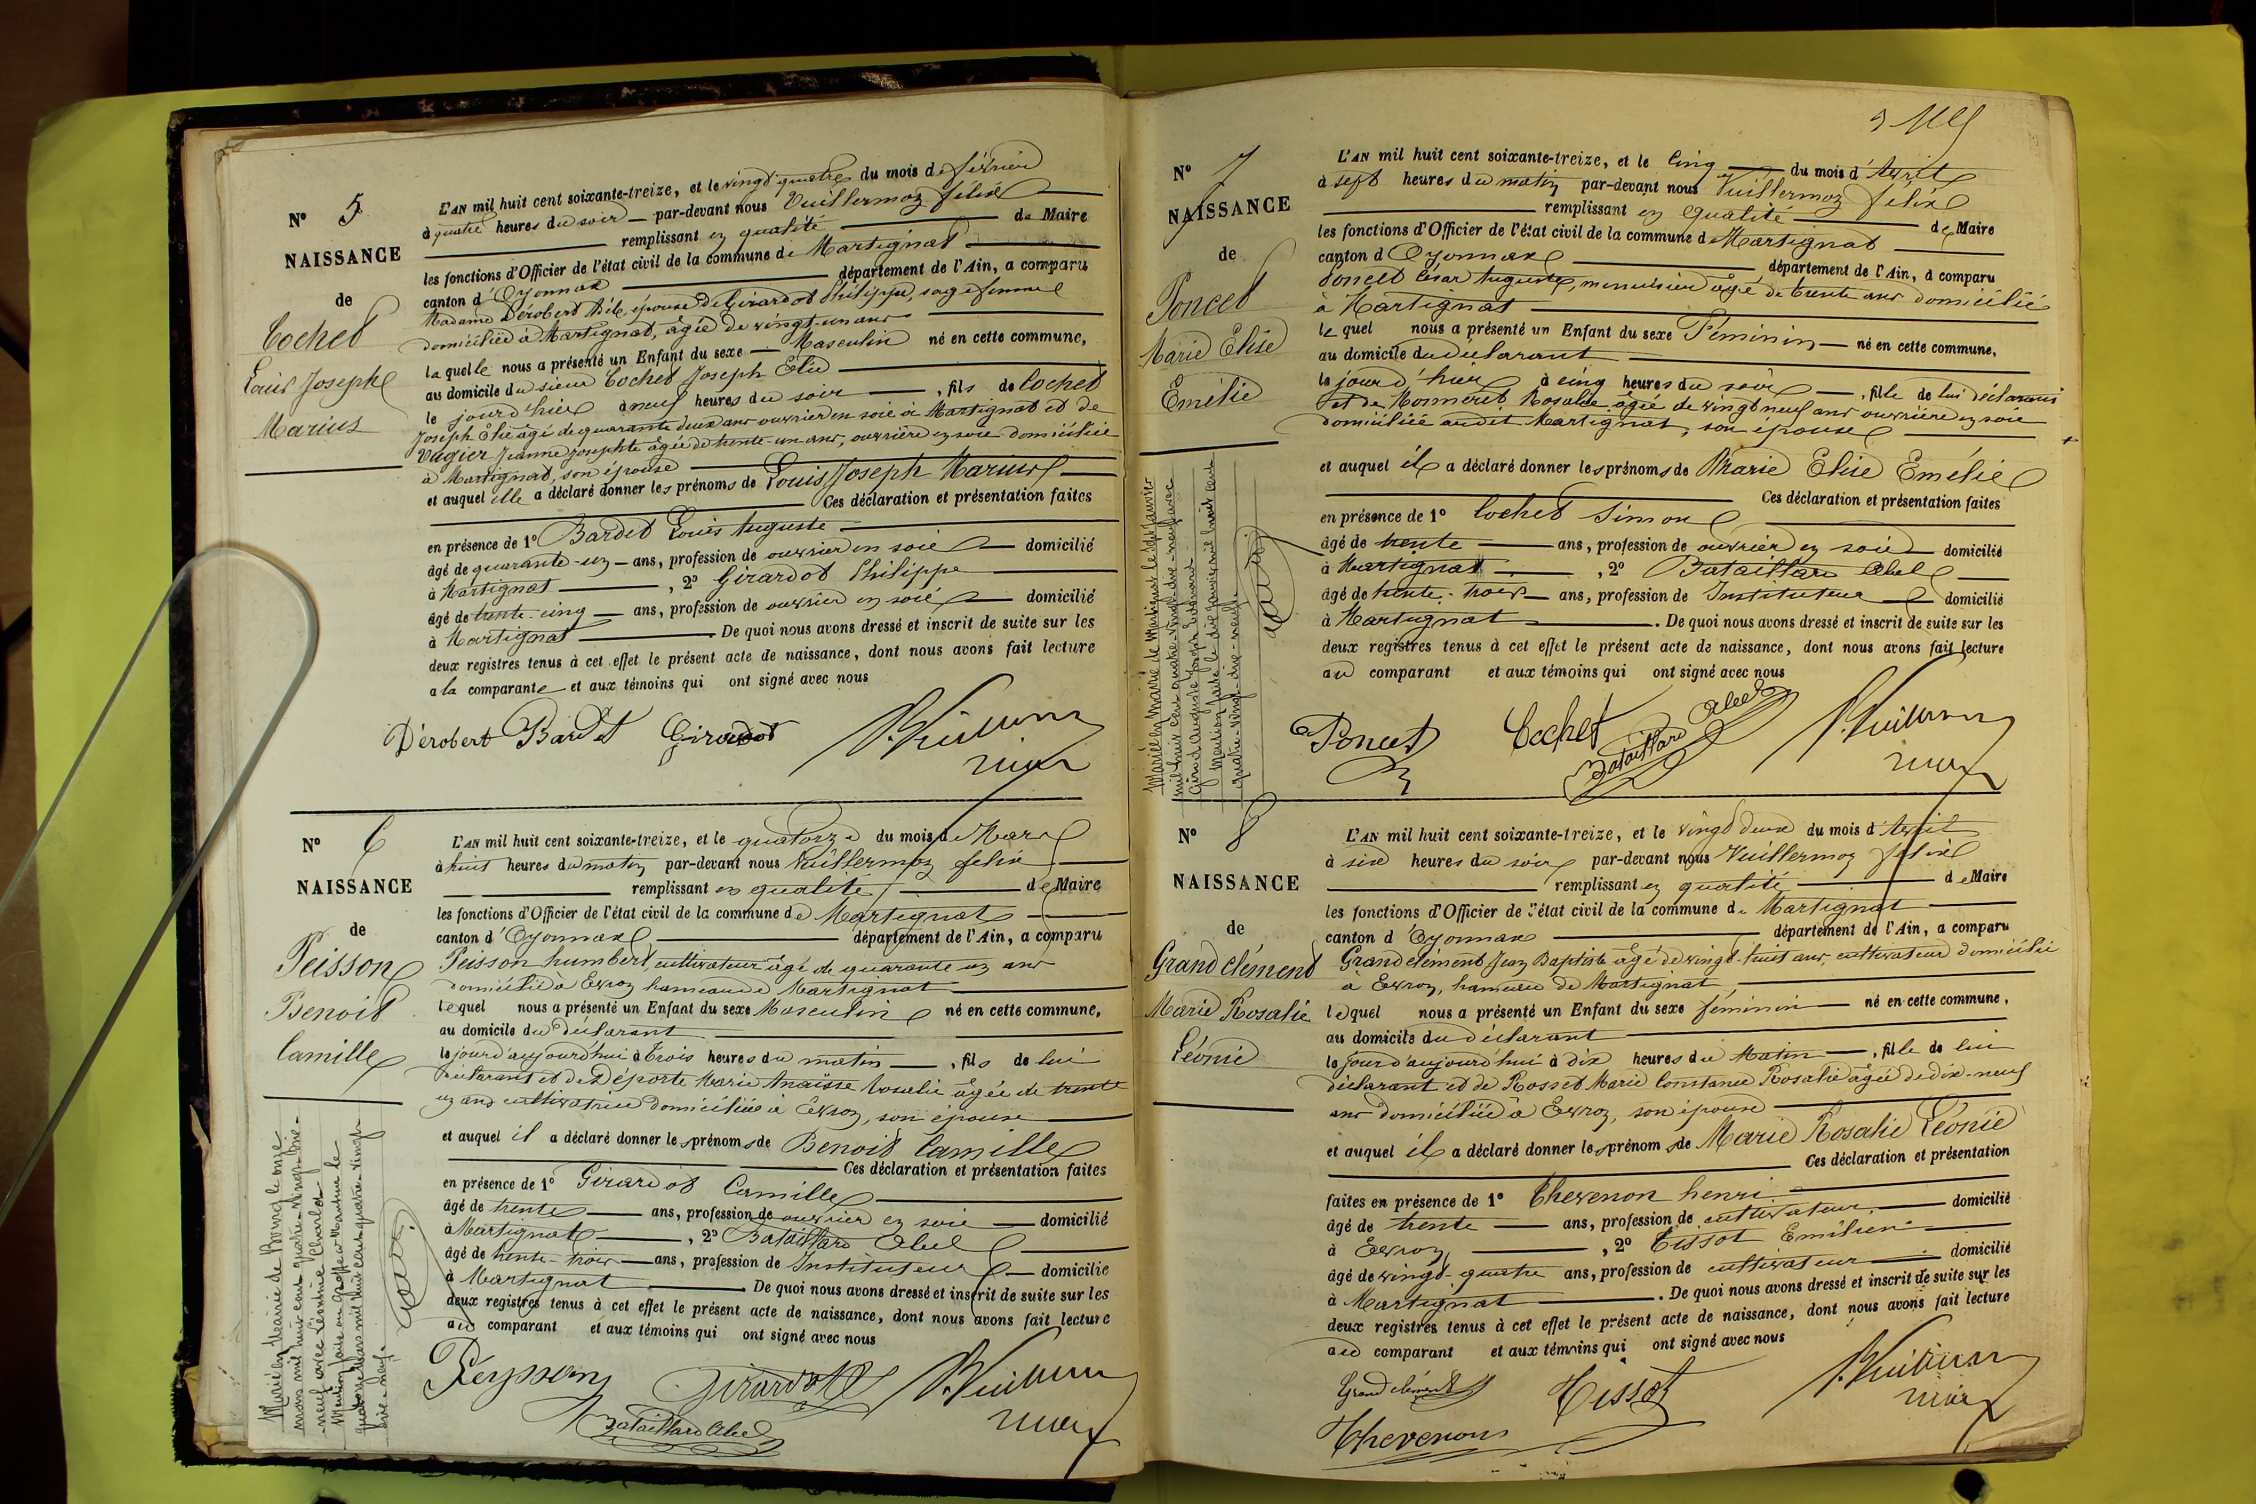 N° 5
NAISSANCE
de
Cochet
Louis Joseph
Marius
L'AN mil huit cent soixante-treize, et le vingt quatre du mois de février
à quatre heures du soir par-devant nous Vuillermoz félix
remplissant en qualité de Maire
les fonctions d'Officier de l'état civil de la commune de Martignat
canton d'Oyonnax département de l'Ain, a comparu
Madame Dérobert épouse de Girardot Philippe, sage femme
domiciliée à Martignat, âgée de vingt-un ans
la quelle nous a présenté un Enfant du sexe Masculin né en cette commune,
au domicile du sieur Cochet Joseph Elie
le jour d'hier à neuf heures du soir, fils de Cochet
Joseph Elie âgé de quarante deux ans ouvrier en soie à Martignat et de
Vugier Jeanne Josephte âgée de trente-un ans, ouvrière en soie domiciliée
à Martignat, son épouse
et auquel elle a déclaré donner les prénoms de Louis Joseph Marius
Ces déclaration et présentation faites
en présence de 1° Bardet Louis Auguste
âgé de quarante-un ans, profession de ouvrier en soie domicilié
à Martignat, 2° Girardot Philippe
âgé de trente-cinq ans, profession de ouvrier en soie domicilié
à Martignat. De quoi nous avons dressé et inscrit de suite sur les
deux registres tenus à cet effet le présent acte de naissance, dont nous avons fait lecture
a la comparante et aux témoins qui ont signé avec nous
Dérobert Bardet Girardot F. Vuillermoz
maire
N° 6
NAISSANCE
de
Peisson
Benoit
Camille
Marié en Mairie de Bourg le onze
mars mil huit cent quatre-vingt-dix-
neuf avec Léontine Charlet
Mention faite au Greffe à Nantua le
quatorze Mars mil huit cent quatre-vingt-
dix-neuf.
L'AN mil huit cent soixante-treize, et le quatorze du mois de Mars
à huit heures du matin par-devant nous Vuillermoz félix
remplissant en qualité de Maire
les fonctions d'Officier de l'état civil de la commune de Martignat
canton d'Oyonnax département de l'Ain, a comparu
Peisson humbert, cultivateur âgé de quarante un ans
domicilié à Evron hameau de Martignat
lequel nous a présenté un Enfant du sexe Masculin né en cette commune,
au domicile du déclarant
le jour d'aujourd'hui à trois heures du matin, fils de lui
déclarant et de Déporte Marie Anaïsse Rosalie âgée de trente
un ans cultivatrice domiciliée à Evron, son épouse
et auquel il a déclaré donner les prénoms de Benoit Camille
Ces déclaration et présentation faites
en présence de 1° Girardot Camille
âgé de trente ans, profession de ouvrier en soie domicilié
à Martignat, 2° Bataillard Abel
âgé de trente-trois ans, profession de Instituteur domicilié
à Martignat. De quoi nous avons dressé et inscrit de suite sur les
deux registres tenus à cet effet le présent acte de naissance, dont nous avons fait lecture
au comparant et aux témoins qui ont signé avec nous
Peysson Girardot F. Vuillermoz
Bataillard Abel maire
N° 7
NAISSANCE
de
Poncet
Marie Elise
Emélie
Mariée en Mairie de Martignat le sept Janvier
mil huit cent quatre-vingt-dix-neuf avec
Girod Auguste Joseph Edouard
Mention faite le dix Janvier mil huit cent
quatre-vingt-dix-neuf.
L'AN mil huit cent soixante-treize, et le cinq du mois d'Avril
à sept heures du matin par-devant nous Vuillermoz félix
remplissant en qualité de Maire
les fonctions d'Officier de l'état civil de la commune de Martignat
canton d'Oyonnax département de l'Ain, a comparu
Poncet César Auguste, menuisier âgé de trente ans domicilié
à Martignat
le quel nous a présenté un Enfant du sexe Féminin né en cette commune,
au domicile du déclarant
le jour d'hier à cinq heures du soir, fille de lui déclarant
et de Monneret Rosalie âgée de vingt neuf ans ouvrière en soie
domiciliée audit Martignat, son épouse
et auquel il a déclaré donner les prénoms de Marie Elise Emélie
Ces déclaration et présentation faites
en présence de 1° Cochet Simon
âgé de trente ans, profession de ouvrier en soie domicilié
à Martignat, 2° Bataillard Abel
âgé de trente-trois ans, profession de Instituteur domicilié
à Martignat. De quoi nous avons dressé et inscrit de suite sur les
deux registres tenus à cet effet le présent acte de naissance, dont nous avons fait lecture
au comparant et aux témoins qui ont signé avec nous
Poncet Cochet Bataillard Abel F. Vuillermoz
maire
N° 8
NAISSANCE
de
Grandclément
Marie Rosalie
Léonie
L'AN mil huit cent soixante-treize, et le vingt deux du mois d'Avril
à six heures du soir par-devant nous Vuillermoz félix
remplissant en qualité de Maire
les fonctions d'Officier de l'état civil de la commune de Martignat
canton d'Oyonnax département de l'Ain, a comparu
Grandclément Jean Baptiste âgé de vingt-huit ans, cultivateur domicilié
à Evron, hameau de Martignat
lequel nous a présenté un Enfant du sexe féminin né en cette commune,
au domicile du déclarant
le jour d'aujourd'hui à dix heures du Matin, fille de lui
déclarant et de Rosset Marie Constance Rosalie âgée de dix-neuf
ans domiciliée à Evron, son épouse
et auquel il a déclaré donner les prénoms de Marie Rosalie Léonie
Ces déclaration et présentation
faites en présence de 1° Thevenon henri
âgé de trente ans, profession de cultivateur domicilié
à Evron, 2° Tissot Emilien
âgé de vingt-quatre ans, profession de cultivateur domicilié
à Martignat. De quoi nous avons dressé et inscrit de suite sur les
deux registres tenus à cet effet le présent acte de naissance, dont nous avons fait lecture
au comparant et aux témoins qui ont signé avec nous
Grandclément Tissot F. Vuillermoz
Thevenon maire